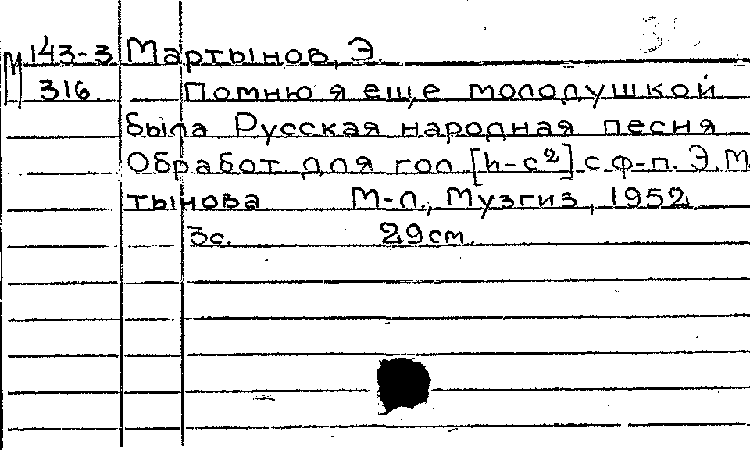 М 143-3 Мартынов, Э.
316. Помню я еще молодушкой
была Русская народная песня
Обработ для гол [h-c²] с ф-п. Э. М
тынова М-Л., Музгиз, 1952
3с. 29см.